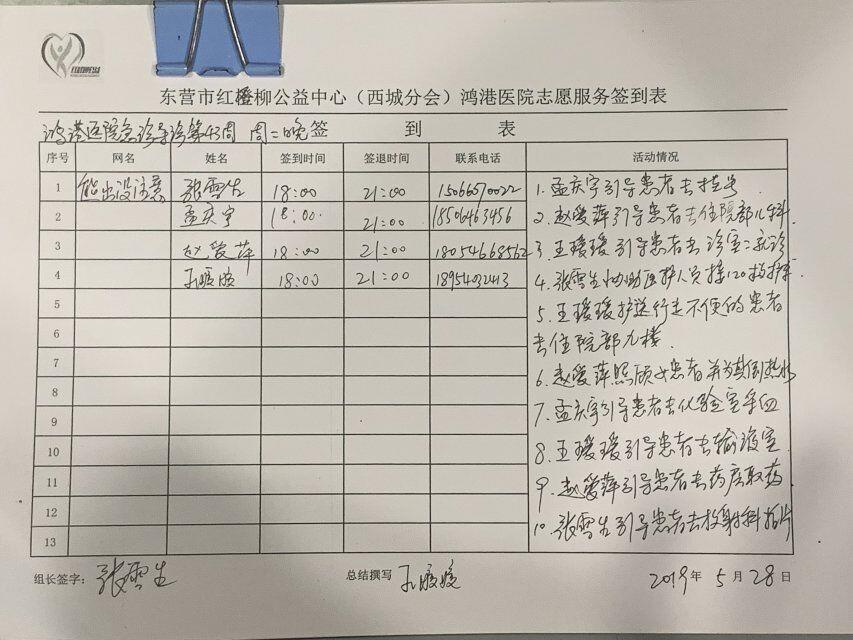 东营市红柽柳公益中心（西城分会）鸿港医院志愿服务签到表
鸿港医院急诊导诊第43周 周二晚 签 到 表
序号 网名 姓名 签到时间 签退时间 联系电话 活动情况
1 熊出没注意 张雪生 18:00 21:00 15066570022
2 孟庆宇 18:00 21:00 18506463456
3 赵爱萍 18:00 21:00 18054668562
4 王瑷瑷 18:00 21:00 18954032413
5
6
7
8
9
10
11
12
13
1.孟庆宇引导患者去挂号
2.赵爱萍引导患者去住院部儿科
3.王瑷瑷引导患者去诊室二就诊
4.张雪生协助医护人员接120救护车
5.王瑷瑷护送行走不便的患者
去住院部九楼.
6.赵爱萍照顾女患者并为其倒热水
7.孟庆宇引导患者去化验室采血
8.王瑷瑷引导患者去输液室
9.赵爱萍引导患者去药房取药
10.张雪生引导患者去放射科拍片
组长签字：张雪生 总结撰写 王瑷瑷 2019年5月28日